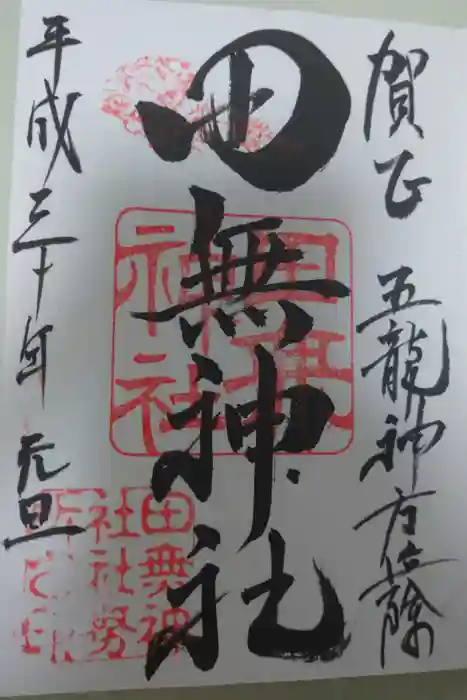 賀正 五龍神方位除
田無神社
平成三十年 元旦
田無神社
田無神
社社務
所之印